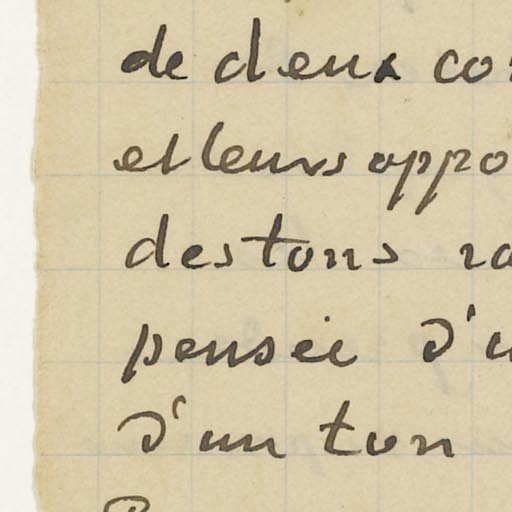 de deux co
et leurs oppo
des tons ra
pensée d'u
d'un ton